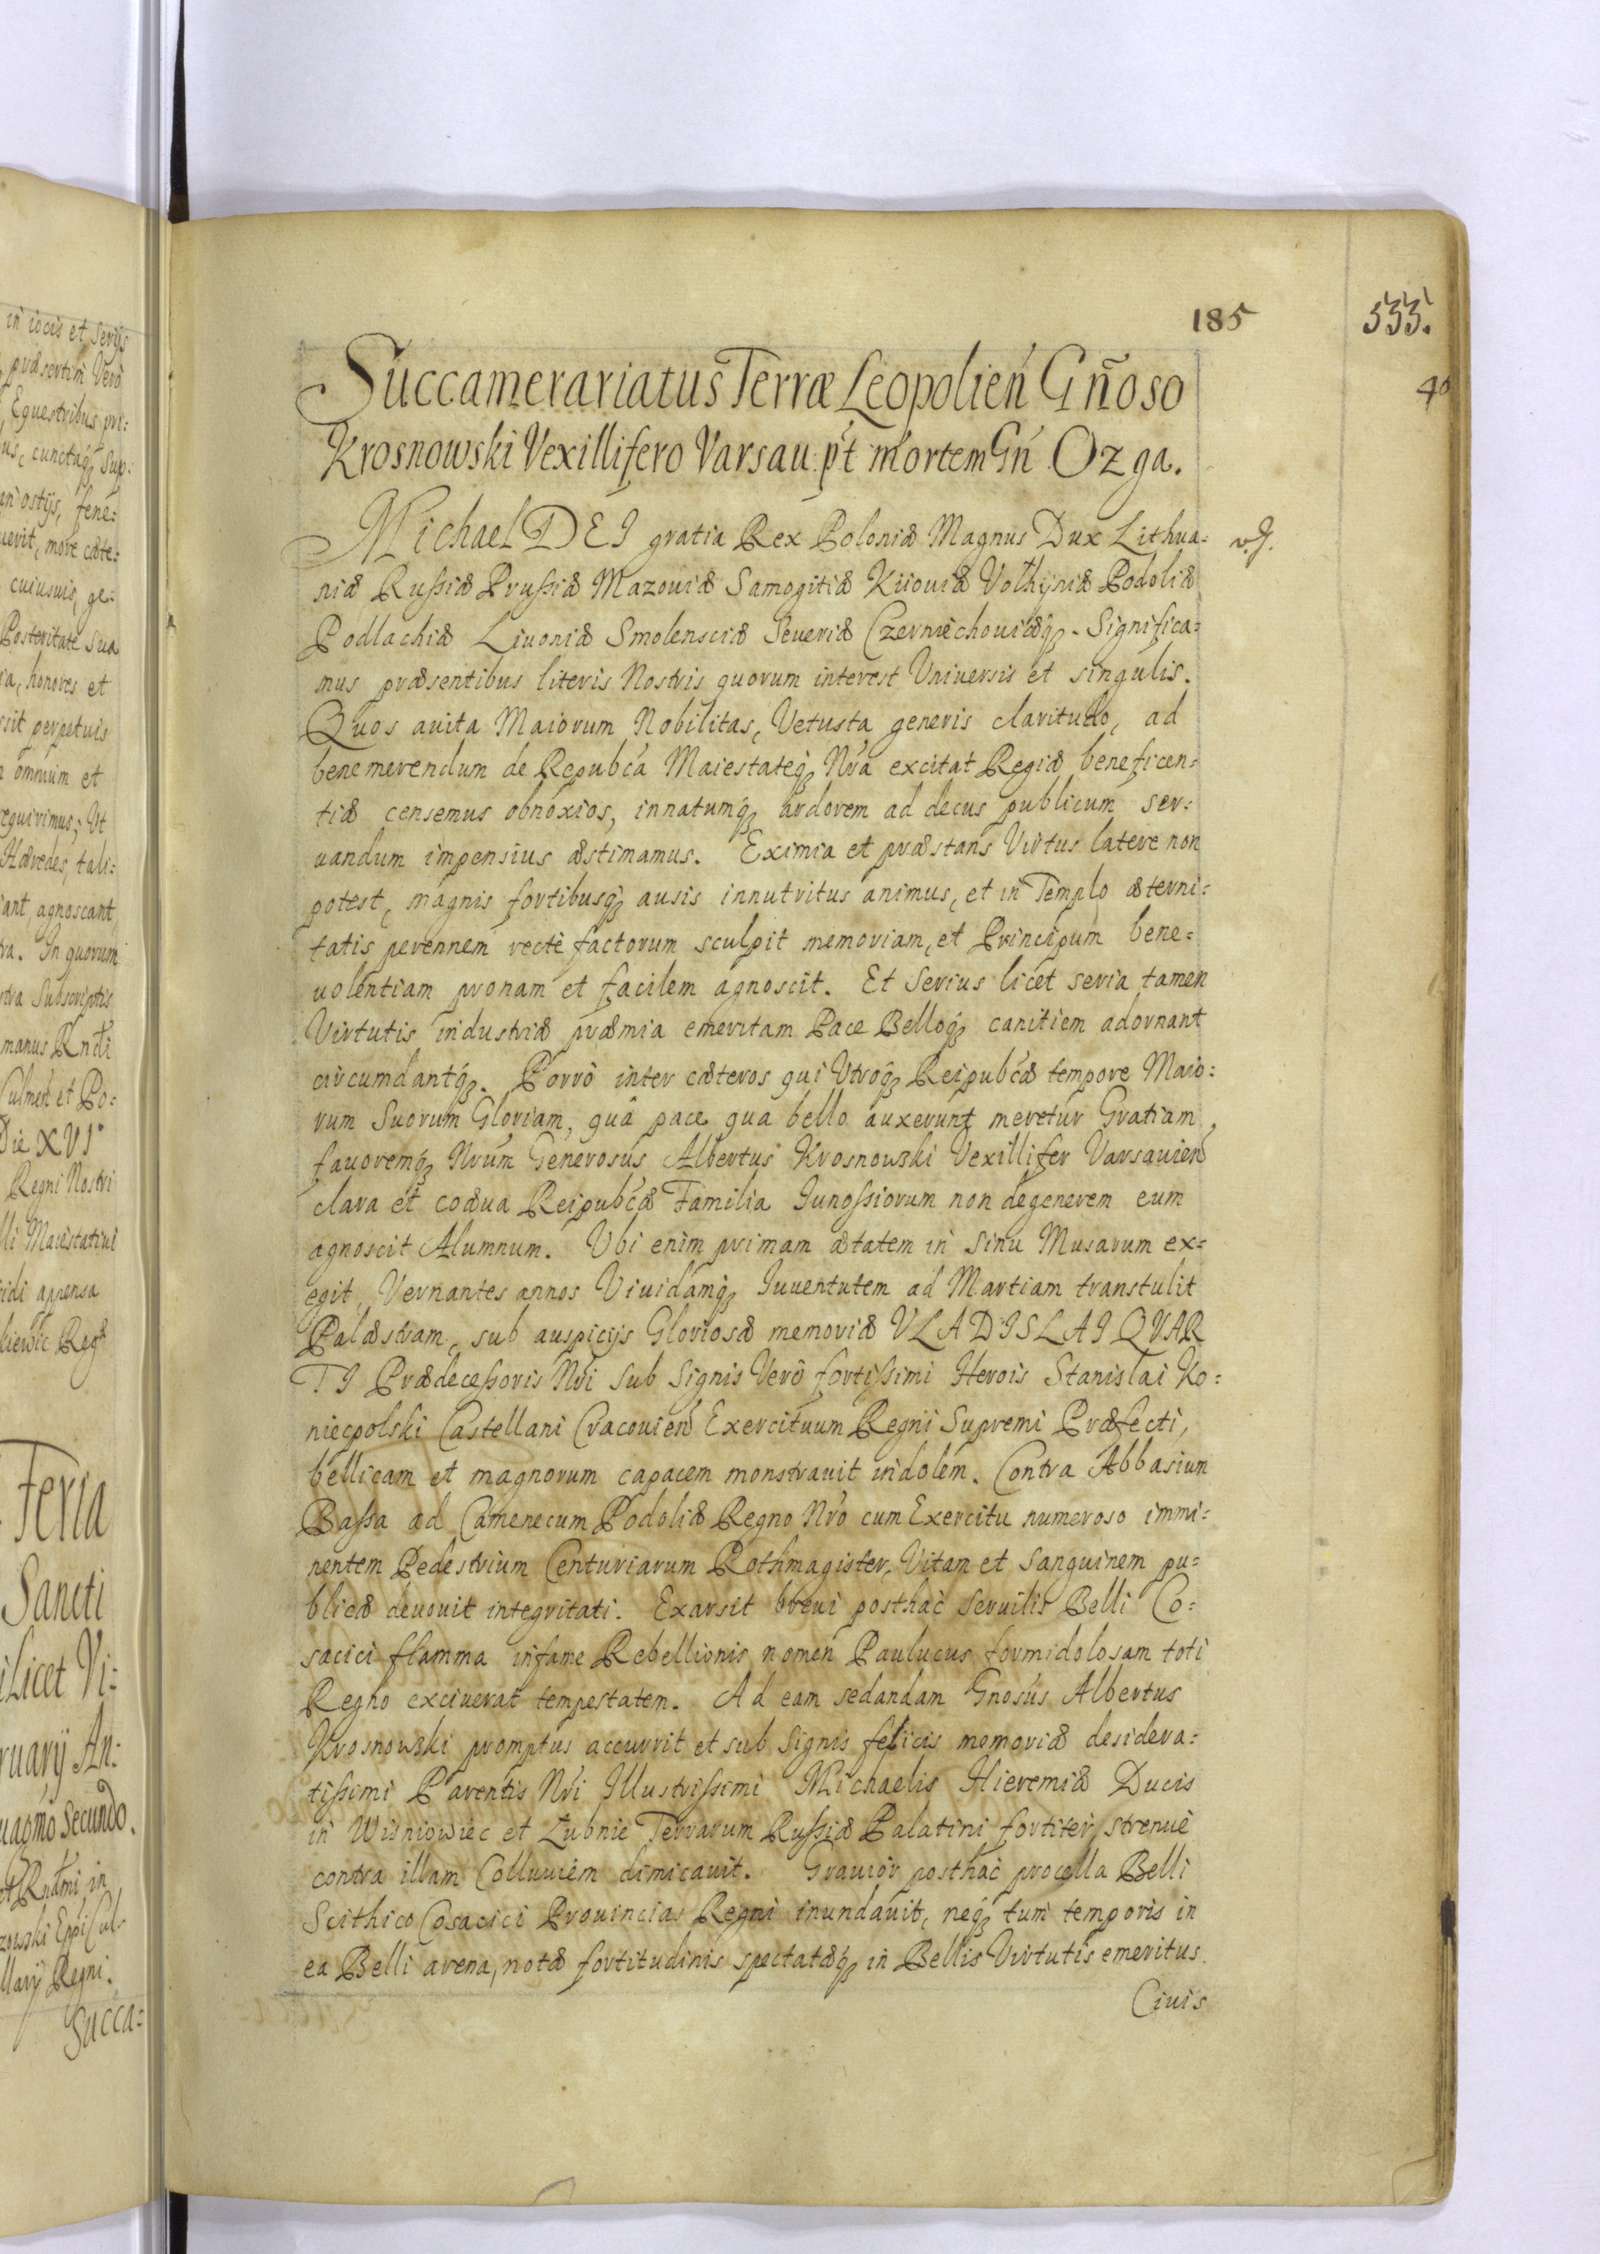 in iocis et seriis
præsertim Vero
Equestribus pri:
us, cunctaq3 Sup:
an ostijs, fene:
uerit, more cæte:
cuiusuis, ge:
Posteritate sua
ia, honores et
sit perpetuis
omnium et
requirimus; Ut
Hæredes, tali:
iant, agnoscant,
ra. In quorum
tra Subscriptis
manus Rndi
Culmen et Po:
Die XVIº
Regni Nostri
lli Maiestatiui
idi appensa
kiewic Reg
Feria
Sancti
ilicet Vi:
ruarij An:
uagmo secundo.
Rndmi in
zowski Eppi Cul-
llarij Regni.
Succa:
185
533.
40
Succamerariatus Terræ Leopolień Gñoso
Krosnowski Vexillifero Varsau: pt mortem Gń Ozga.
Michael DEI gratia Rex Poloniæ Magnus Dux Lithua:
niæ Russiæ Prussiæ Mazouiæ Samogitiæ Kiiouiæ Volhyniæ Podoliæ
Podlachiæ Liuoniæ Smolensciæ Seueriæ Czerniechouiæq3. Significa:
mus præsentibus literis Nostris quorum interest Vniuersis et singulis.
Quos auita Maiorum Nobilitas, Vetusta generis claritudo, ad
benemerendum de Repubca Maiestateq3 Nra excitat Regiæ beneficen:
tiæ censemus obnoxios, innatumq3 ardorem ad decus publicum ser:
uandum impensius æstimamus. Eximia et præstans Virtus latere non
potest, magnis fortibusq3 ausis innutritus animus, et in Templo æterni:
tatis perennem rectè factorum sculpit memoriam, et Principum bene:
uolentiam pronam et facilem agnoscit. Et serius licet seria tamen
Virtutis industriæ præmia emeritam Pace Belloq3 canitiem adornant
circumdantq3. Porrò inter cæteros qui Vtroq3 Reipubcæ tempore Maio:
rum Suorum Gloriam, quâ pace qua bello auxerunt meretur Gratiam
fauoremq3 Nrum Generosus Albertus Krosnowski Vexillifer Varsauien
clara et coæua Reipubcæ Familia Iunossiorum non degenerem eum
agnoscit Alumnum. Vbi enim primam ætatem in sinu Musarum ex=
egit, Vernantes annos Viuidamq3 Iuuentutem ad Martiam transtulit
Palæstram, sub auspicijs Gloriosæ memoriæ VLADISLAI QVAR
TI Prædecessoris Nri sub signis Verò fortissimi Herois Stanislai Ko:
niecpolski Castellani Cracouien Exercituum Regni Supremi Præfecti,
bellicam et magnorum capacem monstrauit indolem. Contra Abbasium
Bassa ad Camenecum Podoliæ Regno Nro cum Exercitu numeroso immi:
nentem Pedestrium Centuriarum Rothmagister, Vitam et sanguinem pu=
blicæ deuouit integritati. Exarsit breui posthac seruilis Belli Co:
sacici flamma infame Rebellionis nomen Paulucus formidolosam toti
Regno exciuerat tempestatem. Ad eam sedandam Gnosus Albertus
Krosnowski promptus accurrit et sub signis felicis memoriæ desidera:
tissimi Parentis Nri Illustrissimi Michaelis Hieremiæ Ducis
in Wisniowiec et Lubnie Terrarum Russiæ Palatini fortiter, strenuè
contra illam Colluuiem dimicauit. Grauior posthac procella Belli
Scithico Cosacici Prouincias Regni inundauit, neq3 tum temporis in
ea Belli arena, notæ fortitudinis spectatæq3 in Bellis Virtutis emeritus
Ciuis